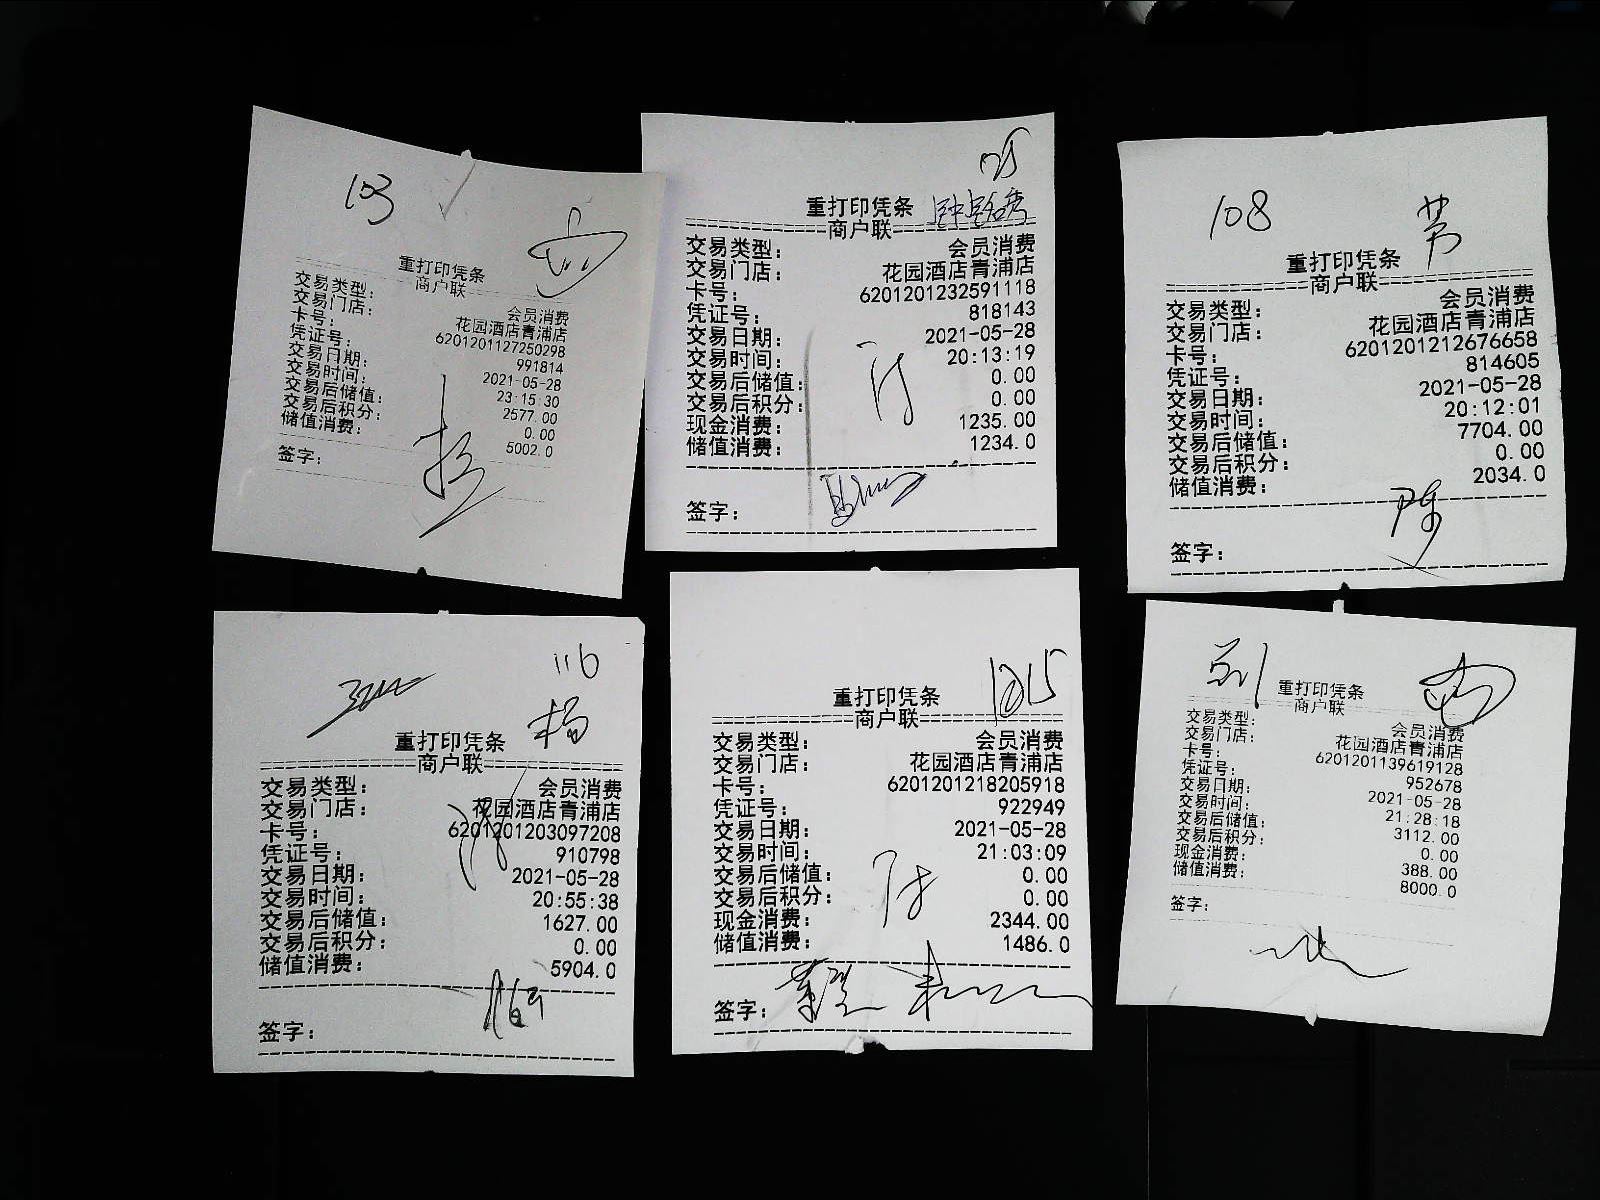 103
重打印凭条
商户联
交易类型: 会员消费
交易门店: 花园酒店青浦店
卡号: 6201201127250298
凭证号: 991814
交易日期: 2021-05-28
交易时间: 23:15:30
交易后储值: 2577.00
交易后积分: 0.00
储值消费: 5002.0
签字:
重打印凭条
商户联
交易类型: 会员消费
交易门店: 花园酒店青浦店
卡号: 6201201232591118
凭证号: 818143
交易日期: 2021-05-28
交易时间: 20:13:19
交易后储值: 0.00
交易后积分: 0.00
现金消费: 1235.00
储值消费: 1234.0
签字:
108
重打印凭条
商户联
交易类型: 会员消费
交易门店: 花园酒店青浦店
卡号: 6201201212676658
凭证号: 814605
交易日期: 2021-05-28
交易时间: 20:12:01
交易后储值: 7704.00
交易后积分: 0.00
储值消费: 2034.0
签字:
116
杨
重打印凭条
商户联
交易类型: 会员消费
交易门店: 花园酒店青浦店
卡号: 6201201203097208
凭证号: 910798
交易日期: 2021-05-28
交易时间: 20:55:38
交易后储值: 1627.00
交易后积分: 0.00
储值消费: 5904.0
签字:
重打印凭条
商户联
交易类型: 会员消费
交易门店: 花园酒店青浦店
卡号: 6201201218205918
凭证号: 922949
交易日期: 2021-05-28
交易时间: 21:03:09
交易后储值: 0.00
交易后积分: 0.00
现金消费: 2344.00
储值消费: 1486.0
签字:
重打印凭条
商户联
交易类型: 会员消费
交易门店: 花园酒店青浦店
卡号: 6201201139619128
凭证号: 952678
交易日期: 2021-05-28
交易时间: 21:28:18
交易后储值: 3112.00
交易后积分: 0.00
现金消费: 388.00
储值消费: 8000.0
签字: